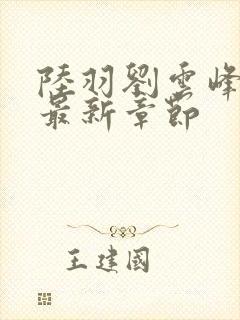 陸羽劉雲峰
最新章節
王建國